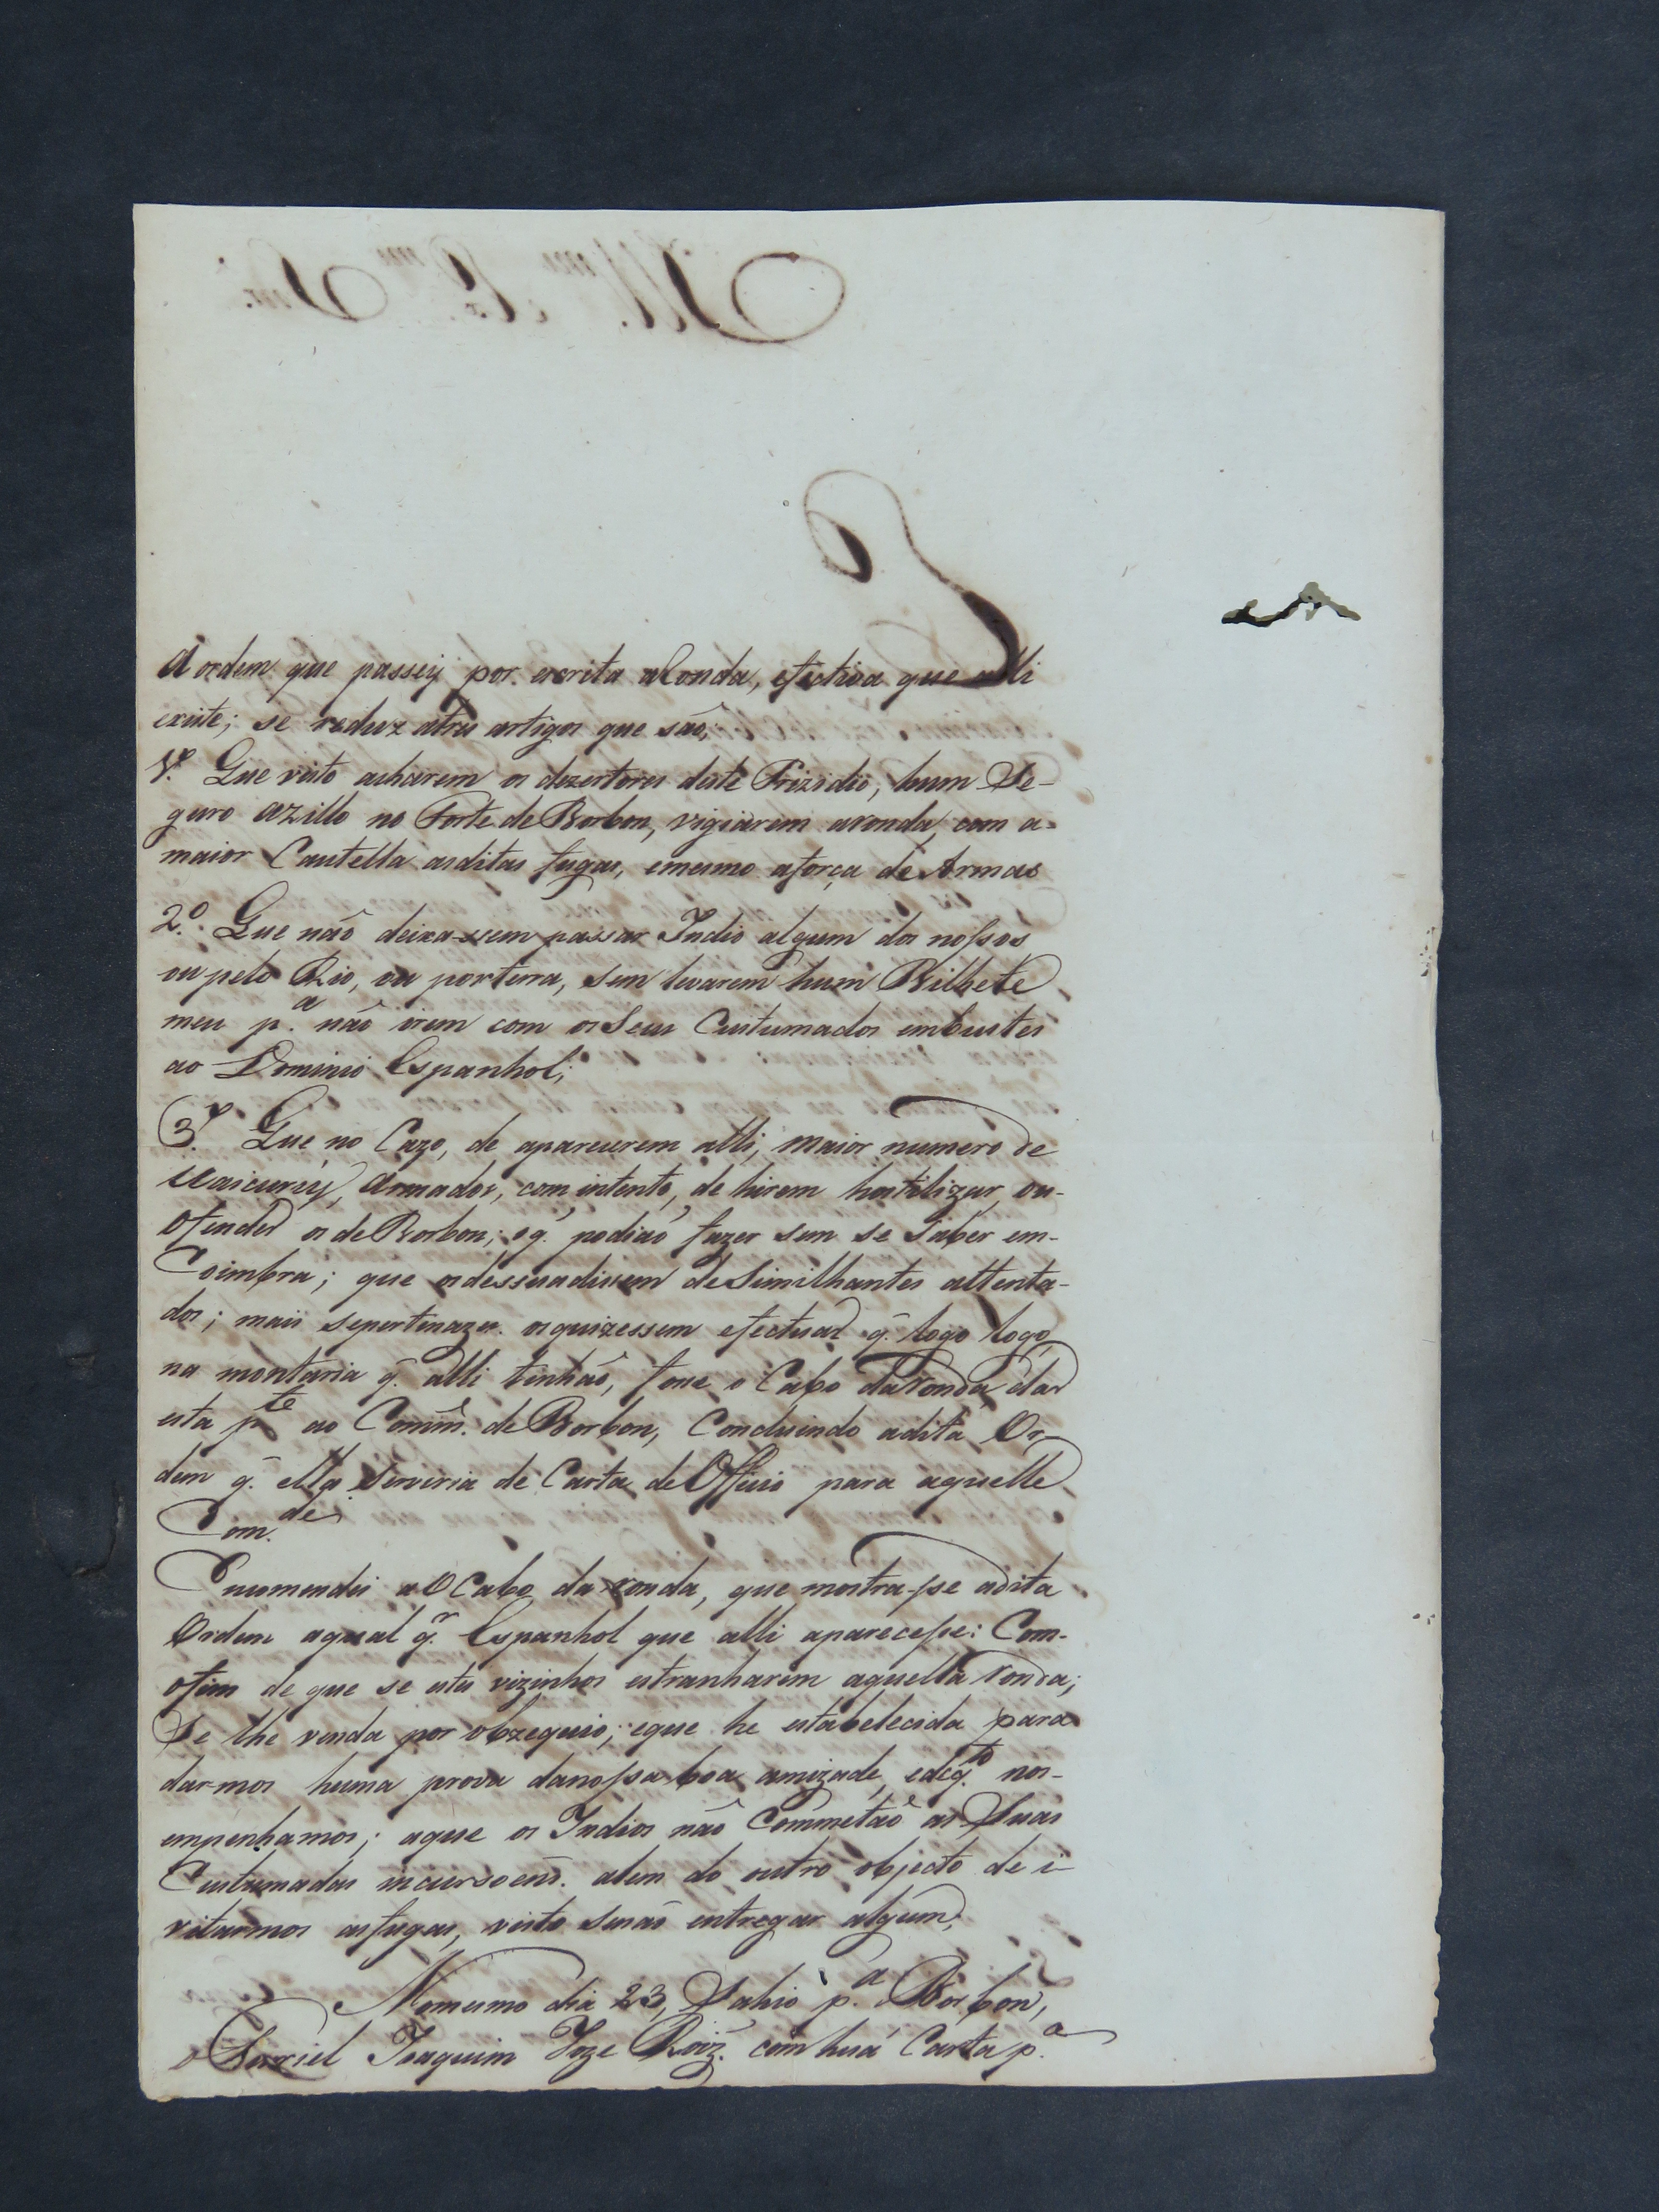 A ordem que passei por escrita aRonda, efectiva que alli
existe; se reduz atres artigos que são;
1.º Que visto acharem os dezertores deste Prizidio, hum Se-
guro azillo no Forte de Borbon, vigiarem aronda, com a-
maior Cautella asditas fugas, emesmo aforça de Armas
2.º Que não deixassem passar Indio algum dos nossos
ou pelo Rio, ou porterra, sem levarem hum Bilhete
meu p.ª não irem com os Seus Custumados embustes
ao Dominio Espanhol;
3.º Que no Cazo, de aparecerem alli, maior numero de
Uaicurús, Armados, com intento, de hirem hostilizar, ou-
ofender os de Borbon; oq. podião fazer sem se Saber em-
Coimbra; que osdessuadissem de Similhantes attenta-
dos; mais sepertinazes. osquizessem efectuar q. logo logo
na montaria q. alli tinhão, fosse o Cabo daronda dar
esta p.te ao Comm. de Borbon, Concluindo adita Or-
dem q. ella Serviria de Carta de Officio para aquelle
Com.de
Encomendei aO Cabo da ronda, que mostra-sse adita
Ordem aqual q.r Espanhol que alli aparecesse: Com-
ofim de que se estes vizinhos estranharem aquella ronda;
Se lhe venda por obzequio; eque he estabelecida para
dar-mos huma prova danossa boa amizade, edeq.to nos-
empenhamos; aque os Indios não Commetão as Suas
Custumadas incursoens. alem do outro objecto de i-
vitarmos asfugas, visto senão entregar algum;
Nomesmo dia 23, Sahio p.ª Borbon,
o Furriel Joaquim Joze Roiz. com huá Carta p.ª